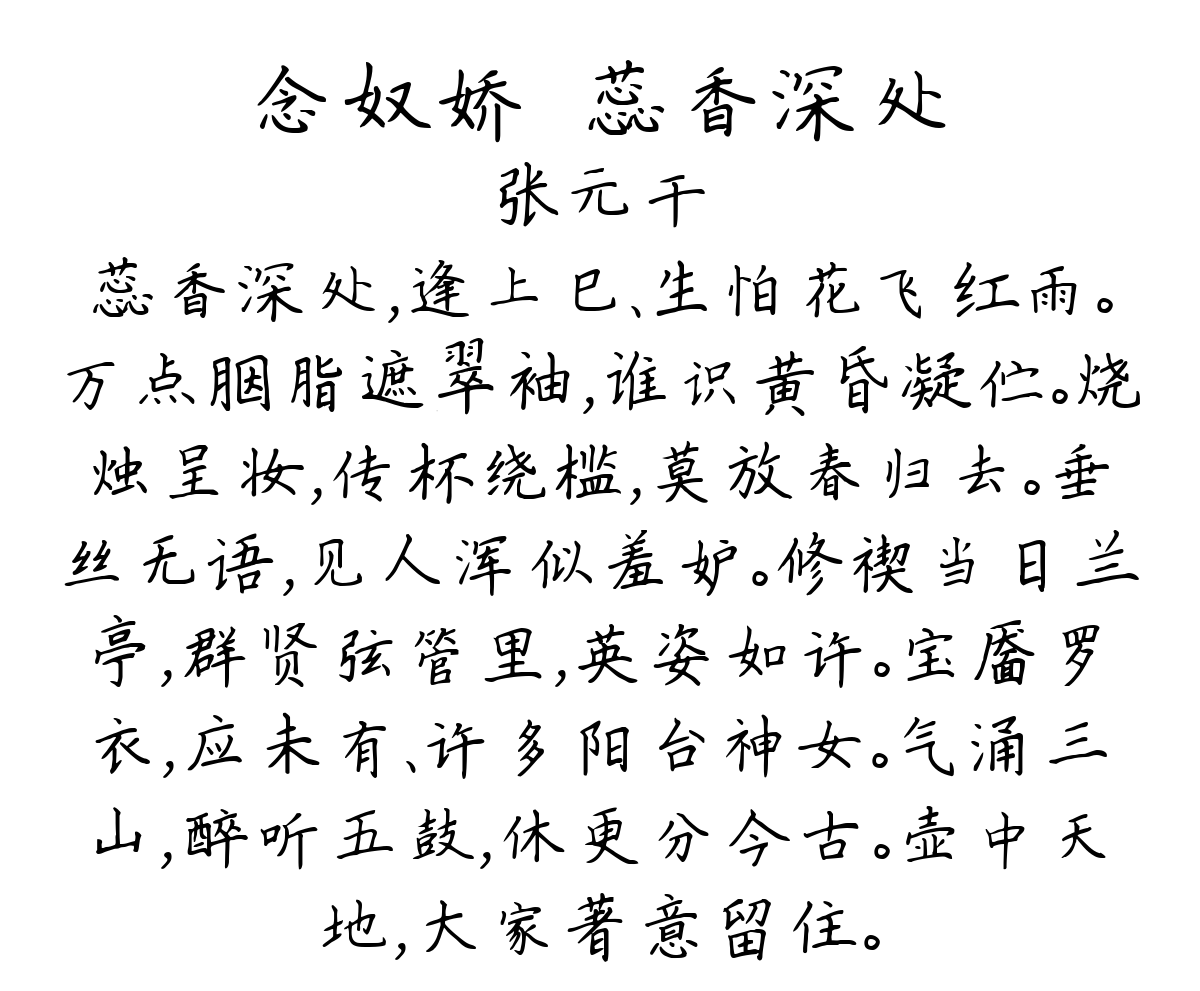 念奴娇 蕊香深处
张元干
蕊香深处,逢上巳、生怕花飞红雨。
万点胭脂遮翠袖,谁识黄昏凝伫。烧
烛呈妆,传杯绕槛,莫放春归去。垂
丝无语,见人浑似羞妒。修禊当日兰
亭,群贤弦管里,英姿如许。宝靥罗
衣,应未有、许多阳台神女。气涌三
山,醉听五鼓,休更分今古。壶中天
地,大家著意留住。